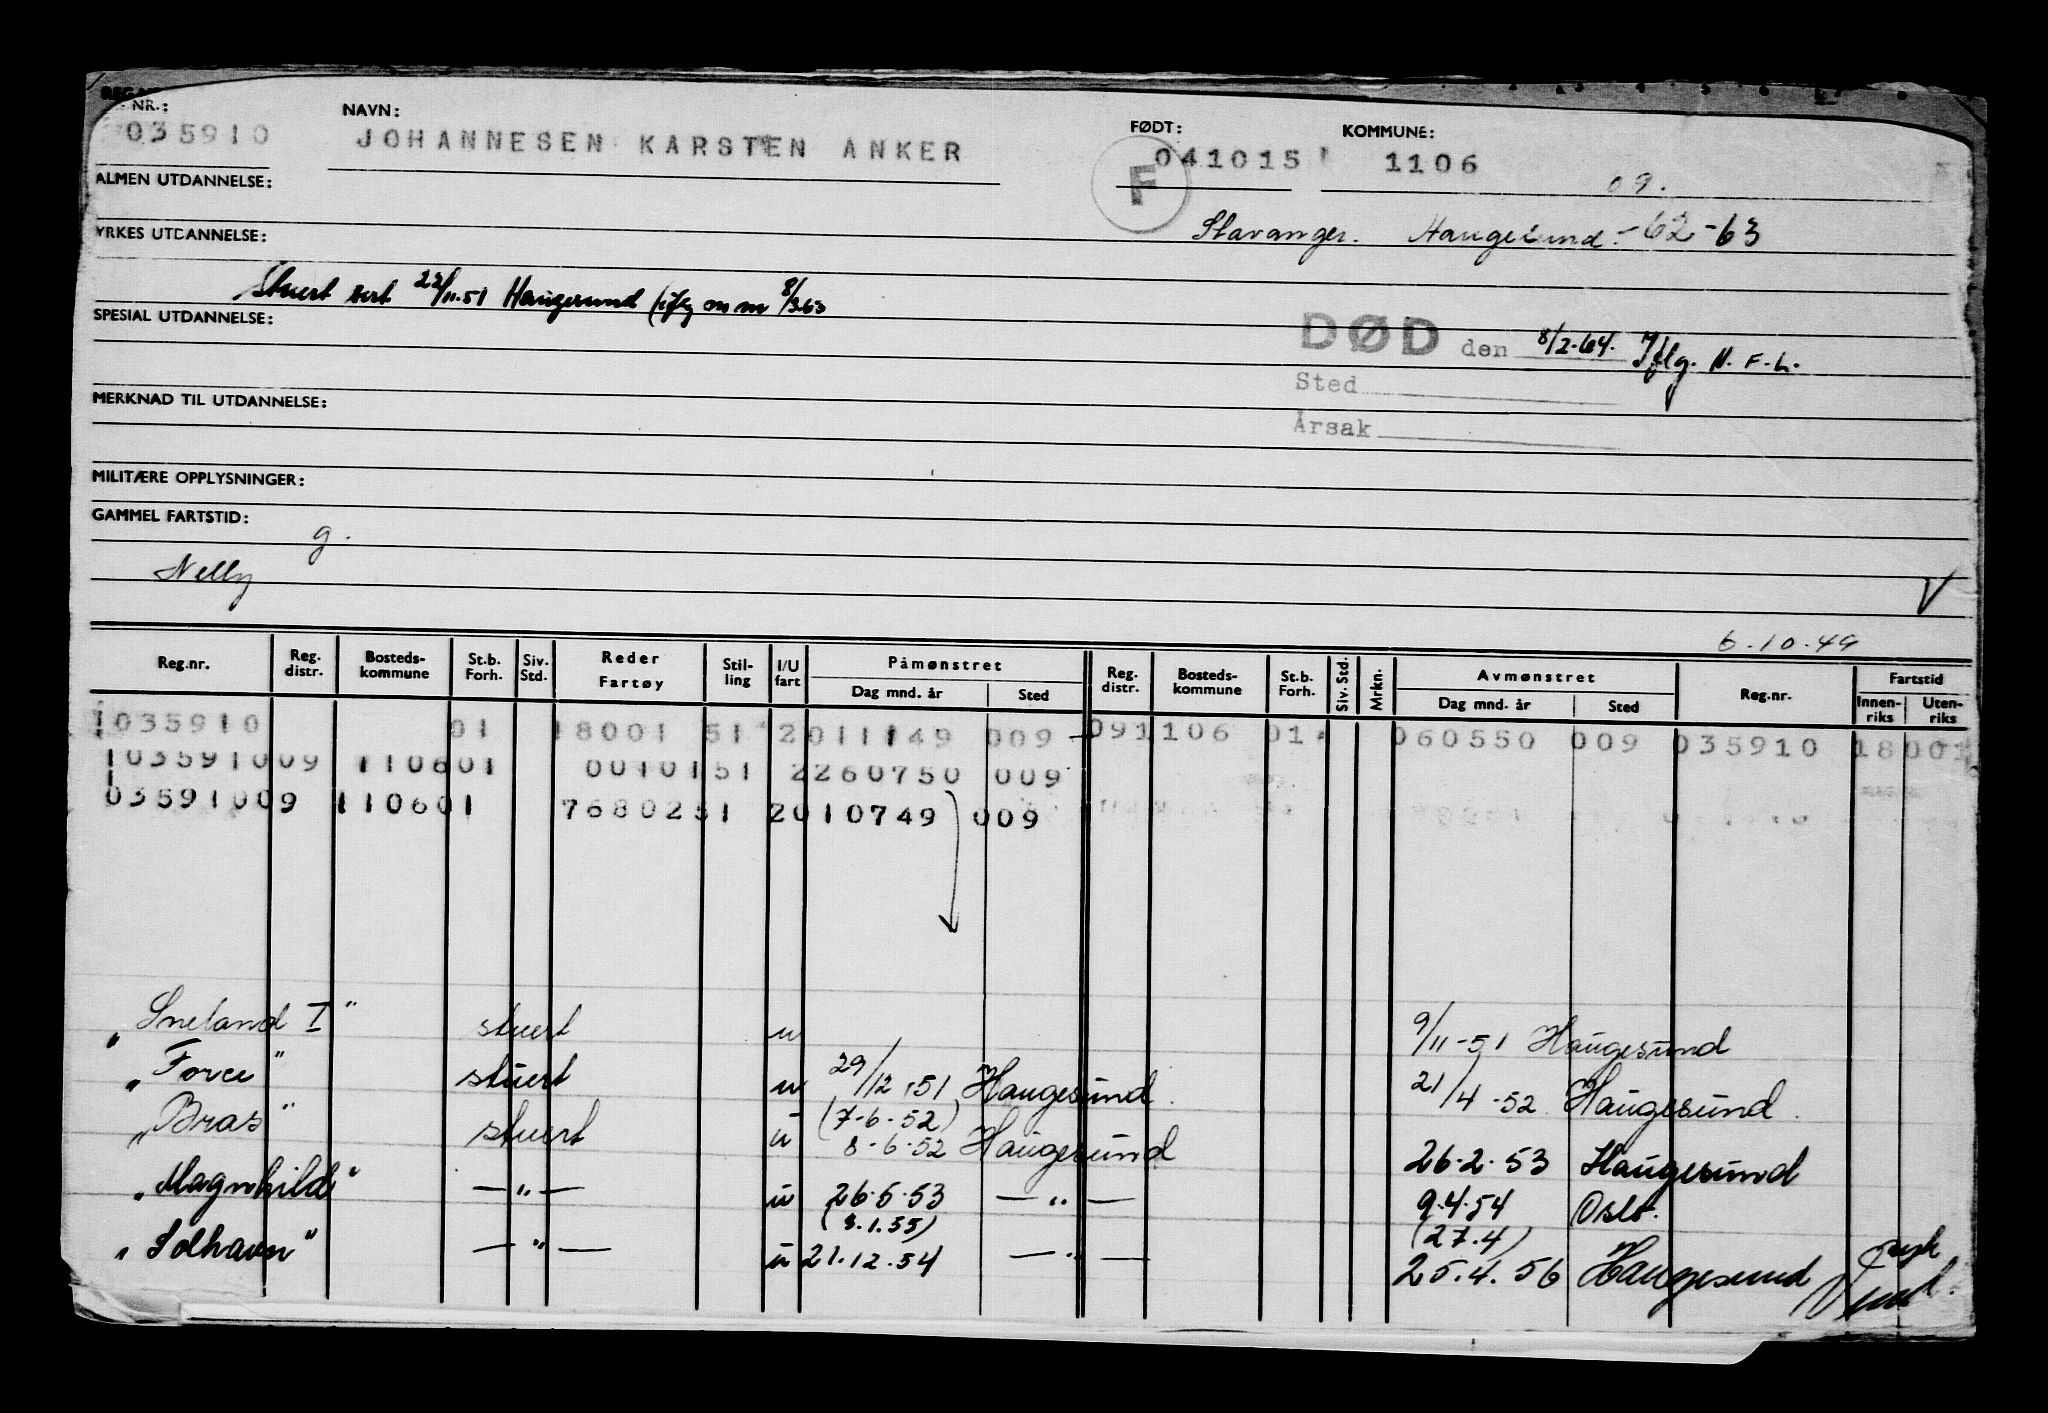 NR.: NAVN: FØDT: KOMMUNE:
035910 JOHANNESEN KARSTEN ANKER 041015 1106
F
ALMEN UTDANNELSE: 09.
YRKES UTDANNELSE: Stavanger. Haugesund. -62-63
Stuert sert 22/11.51 Haugesund 8/3.63
SPESIAL UTDANNELSE:
DØD den 8/2.64. Iflg. N.F.L.
Sted
MERKNAD TIL UTDANNELSE:
Årsak
MILITÆRE OPPLYSNINGER:
GAMMEL FARTSTID:
g.
Nelly V
6.10.49
Reg.nr. Reg. distr. Bosteds-kommune St.b. Forh. Siv. Std. Reder Fartøy Stil-ling I/U fart Påmønstret Dag mnd. år Sted Reg. distr. Bosteds-kommune St.b. Forh. Siv. Std. Mrkn. Avmønstret Dag mnd. år Sted Reg.nr. Fartstid Innen-riks Uten-riks
1035910 01 18001 51 2011149 009 091106 01 060550 009 035910 18001
103591009 110601 0010151 2260750 009
03591009 110601 7680251 2010749 009
"Sneland I" stuert u 9/11-51 Haugesund
"Force" stuert u 29/12.51 Haugesund. 21/4.52 Haugesund.
(7-6.52)
"Bras" stuert u 8-6.52 Haugesund 26.2.53 Haugesund
"Magnhild" —"— u 26.5.53 —"— 9.4.54 Oslo.
(3.1.55) (27.4)
"Solhavn" —"— u 21.12.54 —"— 25.4.56 Haugesund